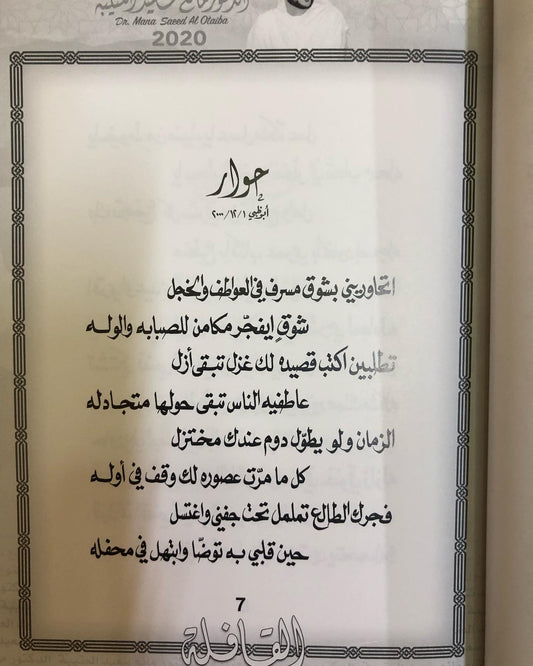 الدكتور مانع سعيد العتيبة
Dr. Mana Saeed Al Otaiba
2020
حوار
أبوظبي ٢٠٠٠/١٢/١
اتحاوريني بشوق مسرف في العواطف والخجل
شوقٍ ايفجّر مكامن للصبابه والوله
تطلبين اكتب قصيده لك غزل تبقى أزل
عاطفيه الناس تبقى حولها متجادله
الزمان ولو يطوّل دوم عندك مختزل
كل ما مرّت عصوره لك وقف في أوله
فجرك الطالع تململ تحت جفني واغتسل
حين قلبي به توضّا وابتهل في محفله
7
القافلة